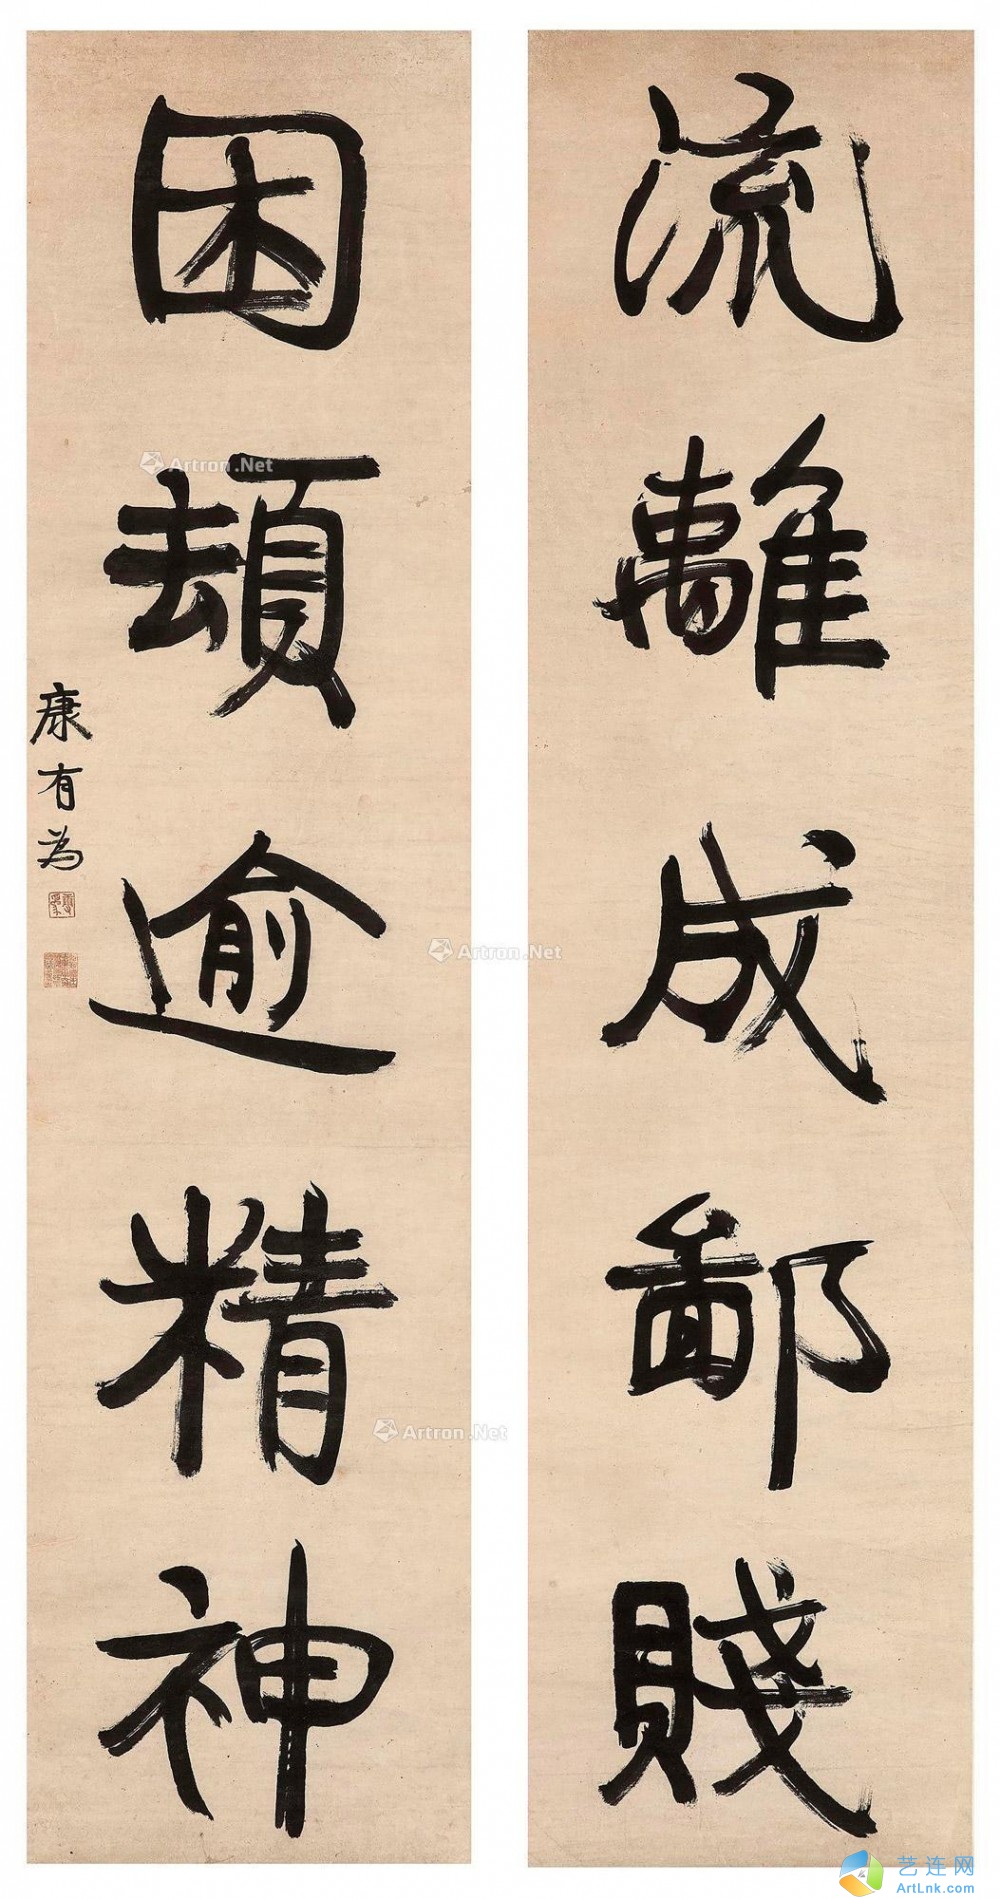 流離成鄙賤
困頓逾精神
康有為
Artron.Net
Artron.Net
Artron.Net
艺连网
ArtLnk.com